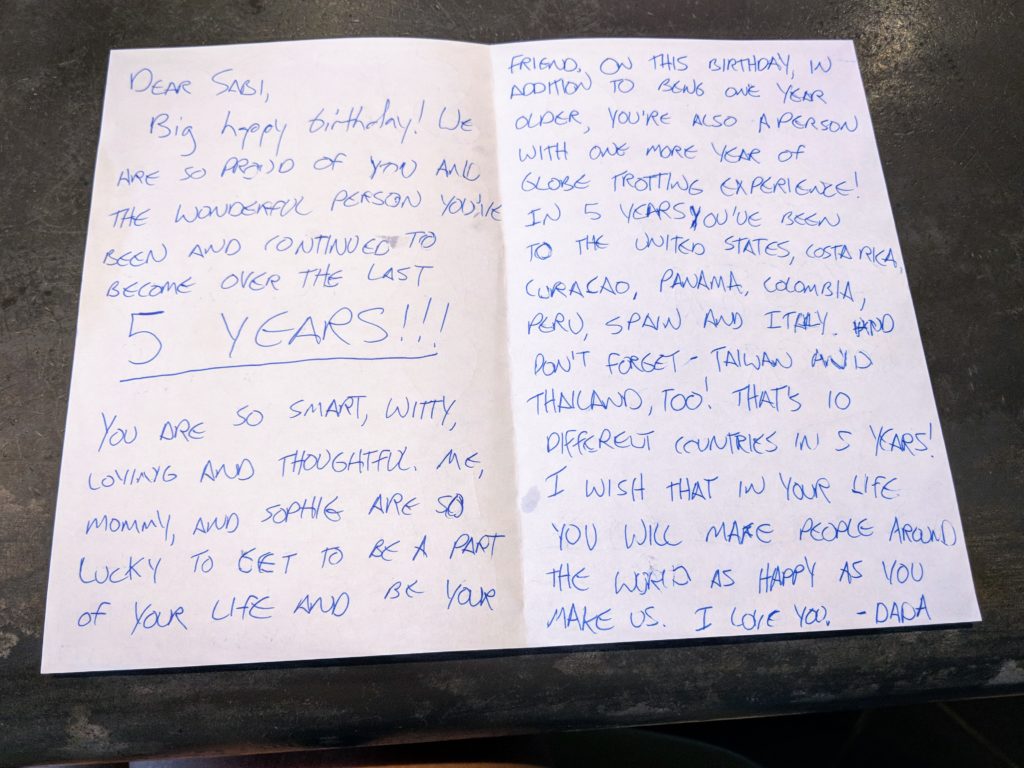 DEAR SABI,
Big happy birthday! WE
ARE SO PROUD OF YOU AND
THE WONDERFUL PERSON YOU'VE
BEEN AND CONTINUED TO
BECOME OVER THE LAST
5 YEARS!!!
YOU ARE SO SMART, WITTY,
LOVING AND THOUGHTFUL. ME,
MOMMY, AND SOPHIE ARE SO
LUCKY TO GET TO BE A PART
OF YOUR LIFE AND BE YOUR
FRIEND. ON THIS BIRTHDAY, IN
ADDITION TO BEING ONE YEAR
OLDER, YOU'RE ALSO A PERSON
WITH ONE MORE YEAR OF
GLOBE TROTTING EXPERIENCE!
IN 5 YEARS YOU'VE BEEN
TO THE UNITED STATES, COSTA RICA,
CURACAO, PANAMA, COLOMBIA,
PERU, SPAIN AND ITALY. AND
DON'T FORGET - TAIWAN AND
THAILAND, TOO! THAT'S 10
DIFFERENT COUNTRIES IN 5 YEARS!
I WISH THAT IN YOUR LIFE
YOU WILL MAKE PEOPLE AROUND
THE WORLD AS HAPPY AS YOU
MAKE US. I LOVE YOU. - DADA